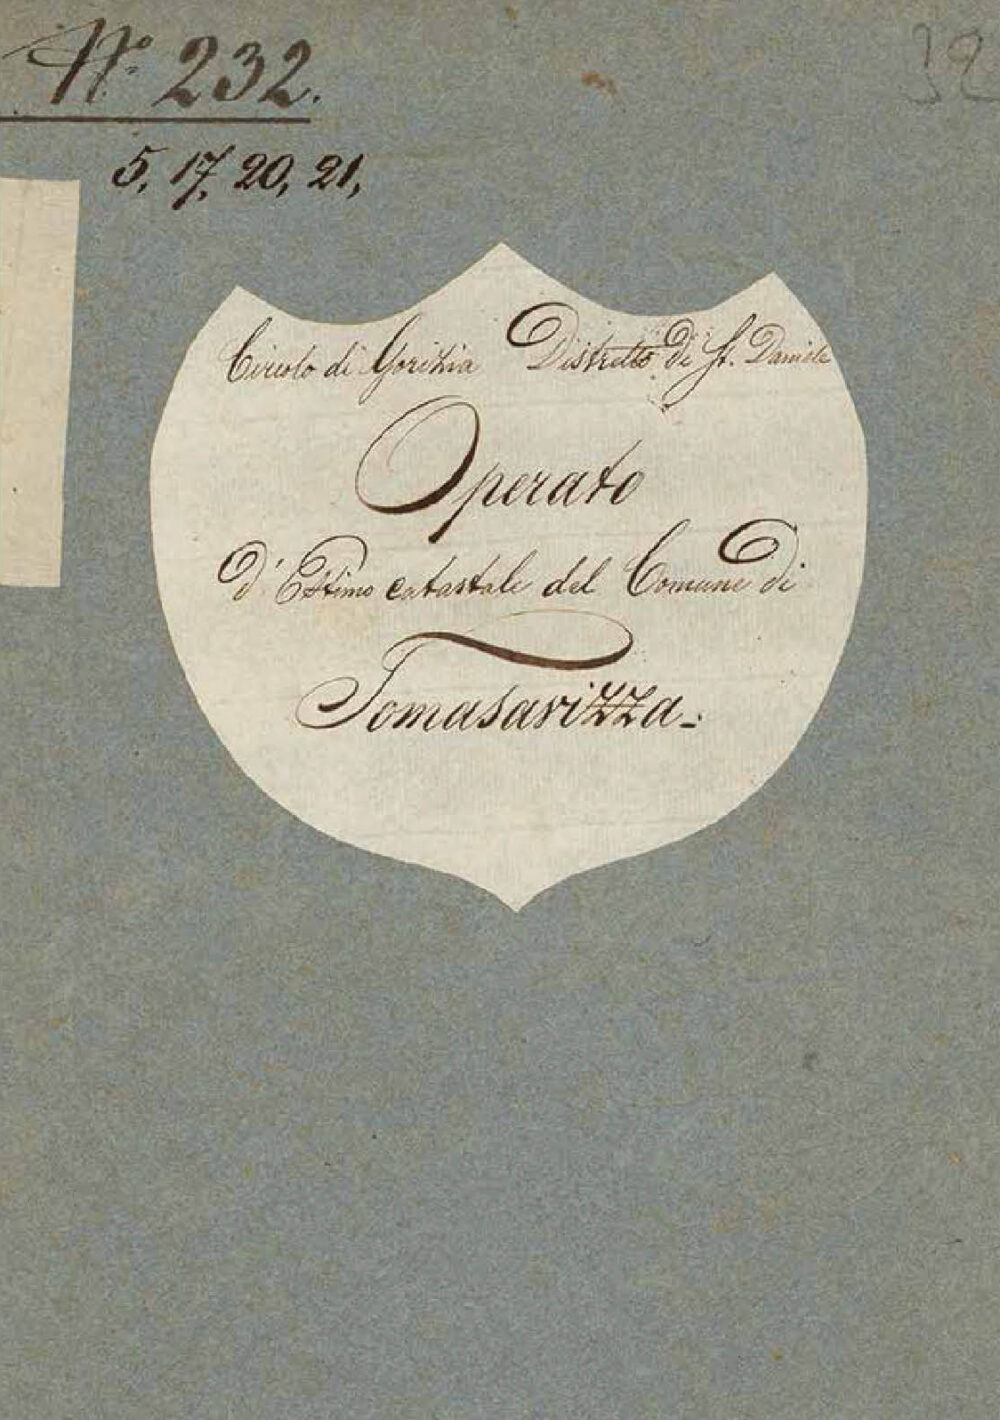 Nº 232.
32
5, 17, 20, 21,
Circolo di Gorizia Distretto di St. Daniele
Operato
d'Estimo catastale del Comune di
Tomasavizza